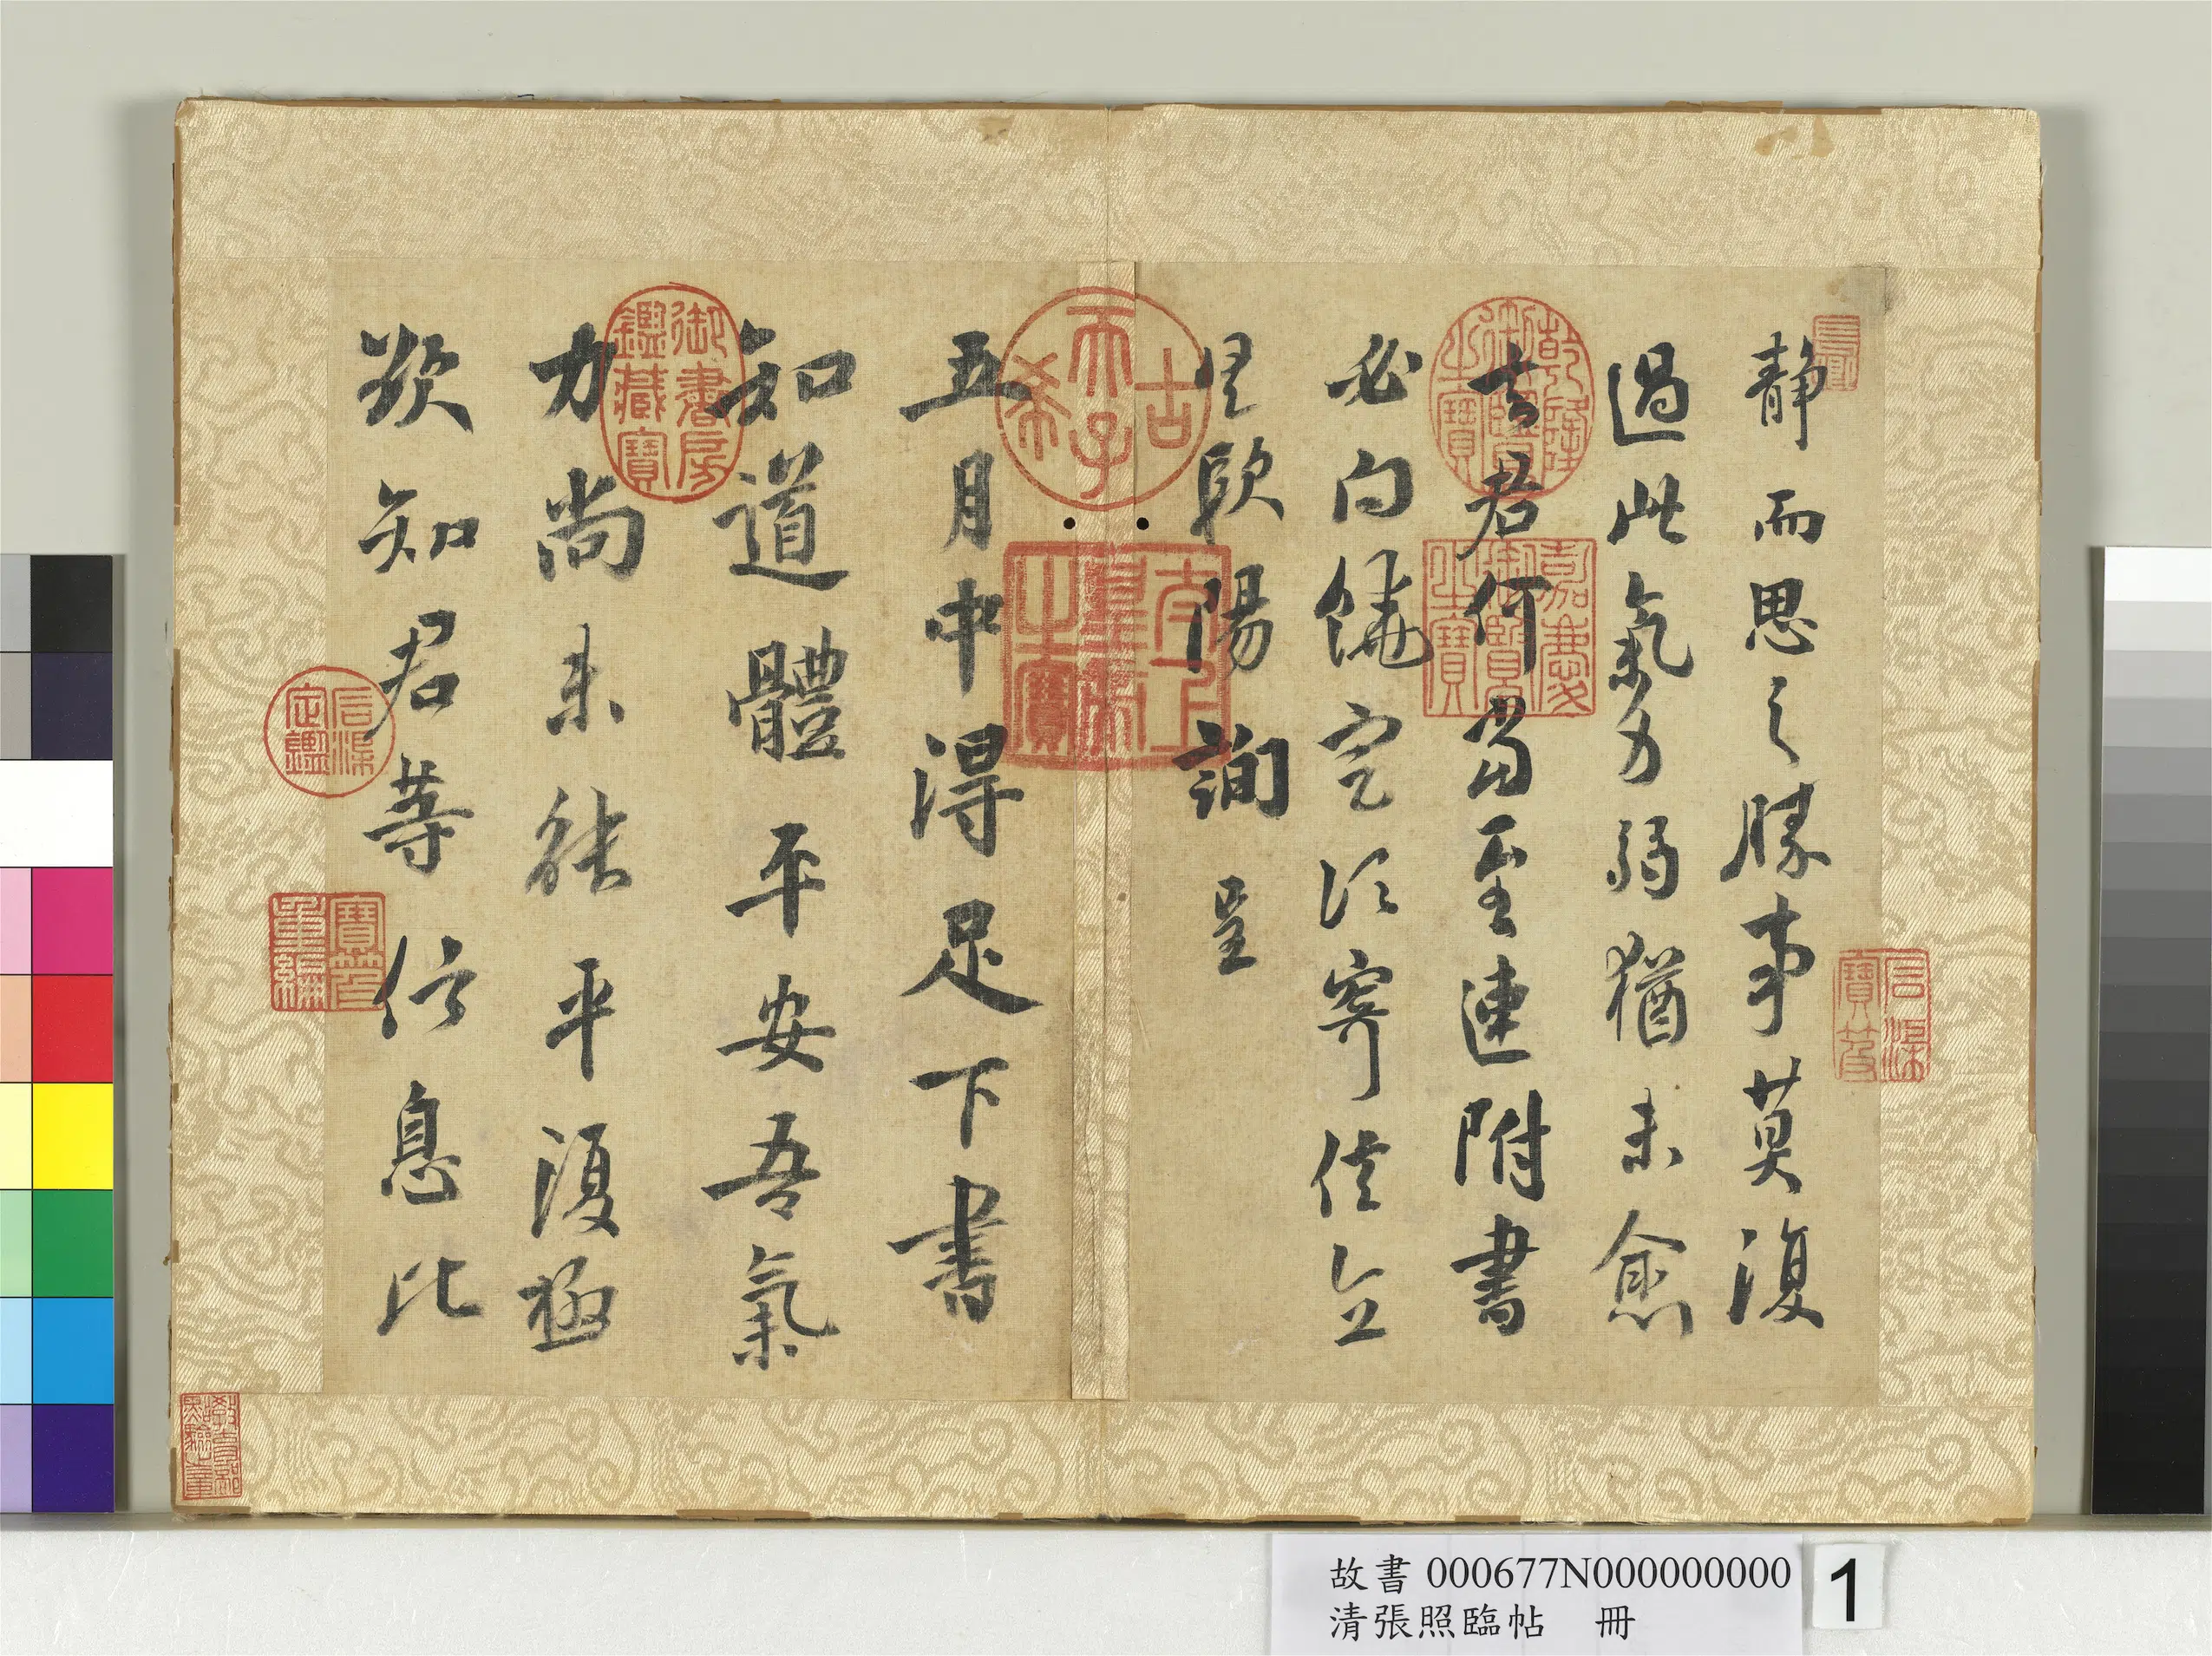 靜而思之勝事莫復
過此氣力弱猶未愈
吾君何當至速附書
必向饒定須寄信立
歐陽詢呈
五月中得足下書
知道體平安吾氣
力尚未能平復極
欲知君等信息比
乾隆御覽之寶
嘉慶御覽之寶
石渠寶笈
古希天子
太上皇帝之寶
御書房鑑藏寶
石渠定鑑
寶笈重編
教育部點驗之章
故書 000677N000000000
清張照臨帖 冊
1